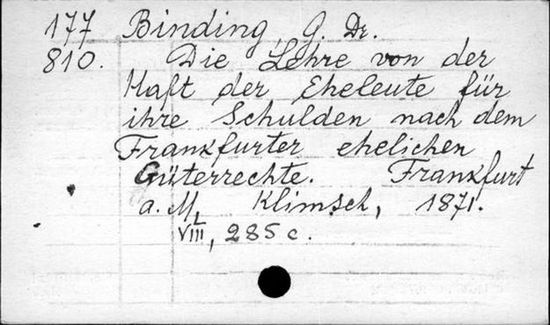 177 Binding, G. Dr.
810. Die Lehre von der
Haft der Eheleute für
ihre Schulden nach dem
Frankfurter ehelichen
Güterrechte. Frankfurt
a. M, Klimsch, 1871.
VIII, 285 c.